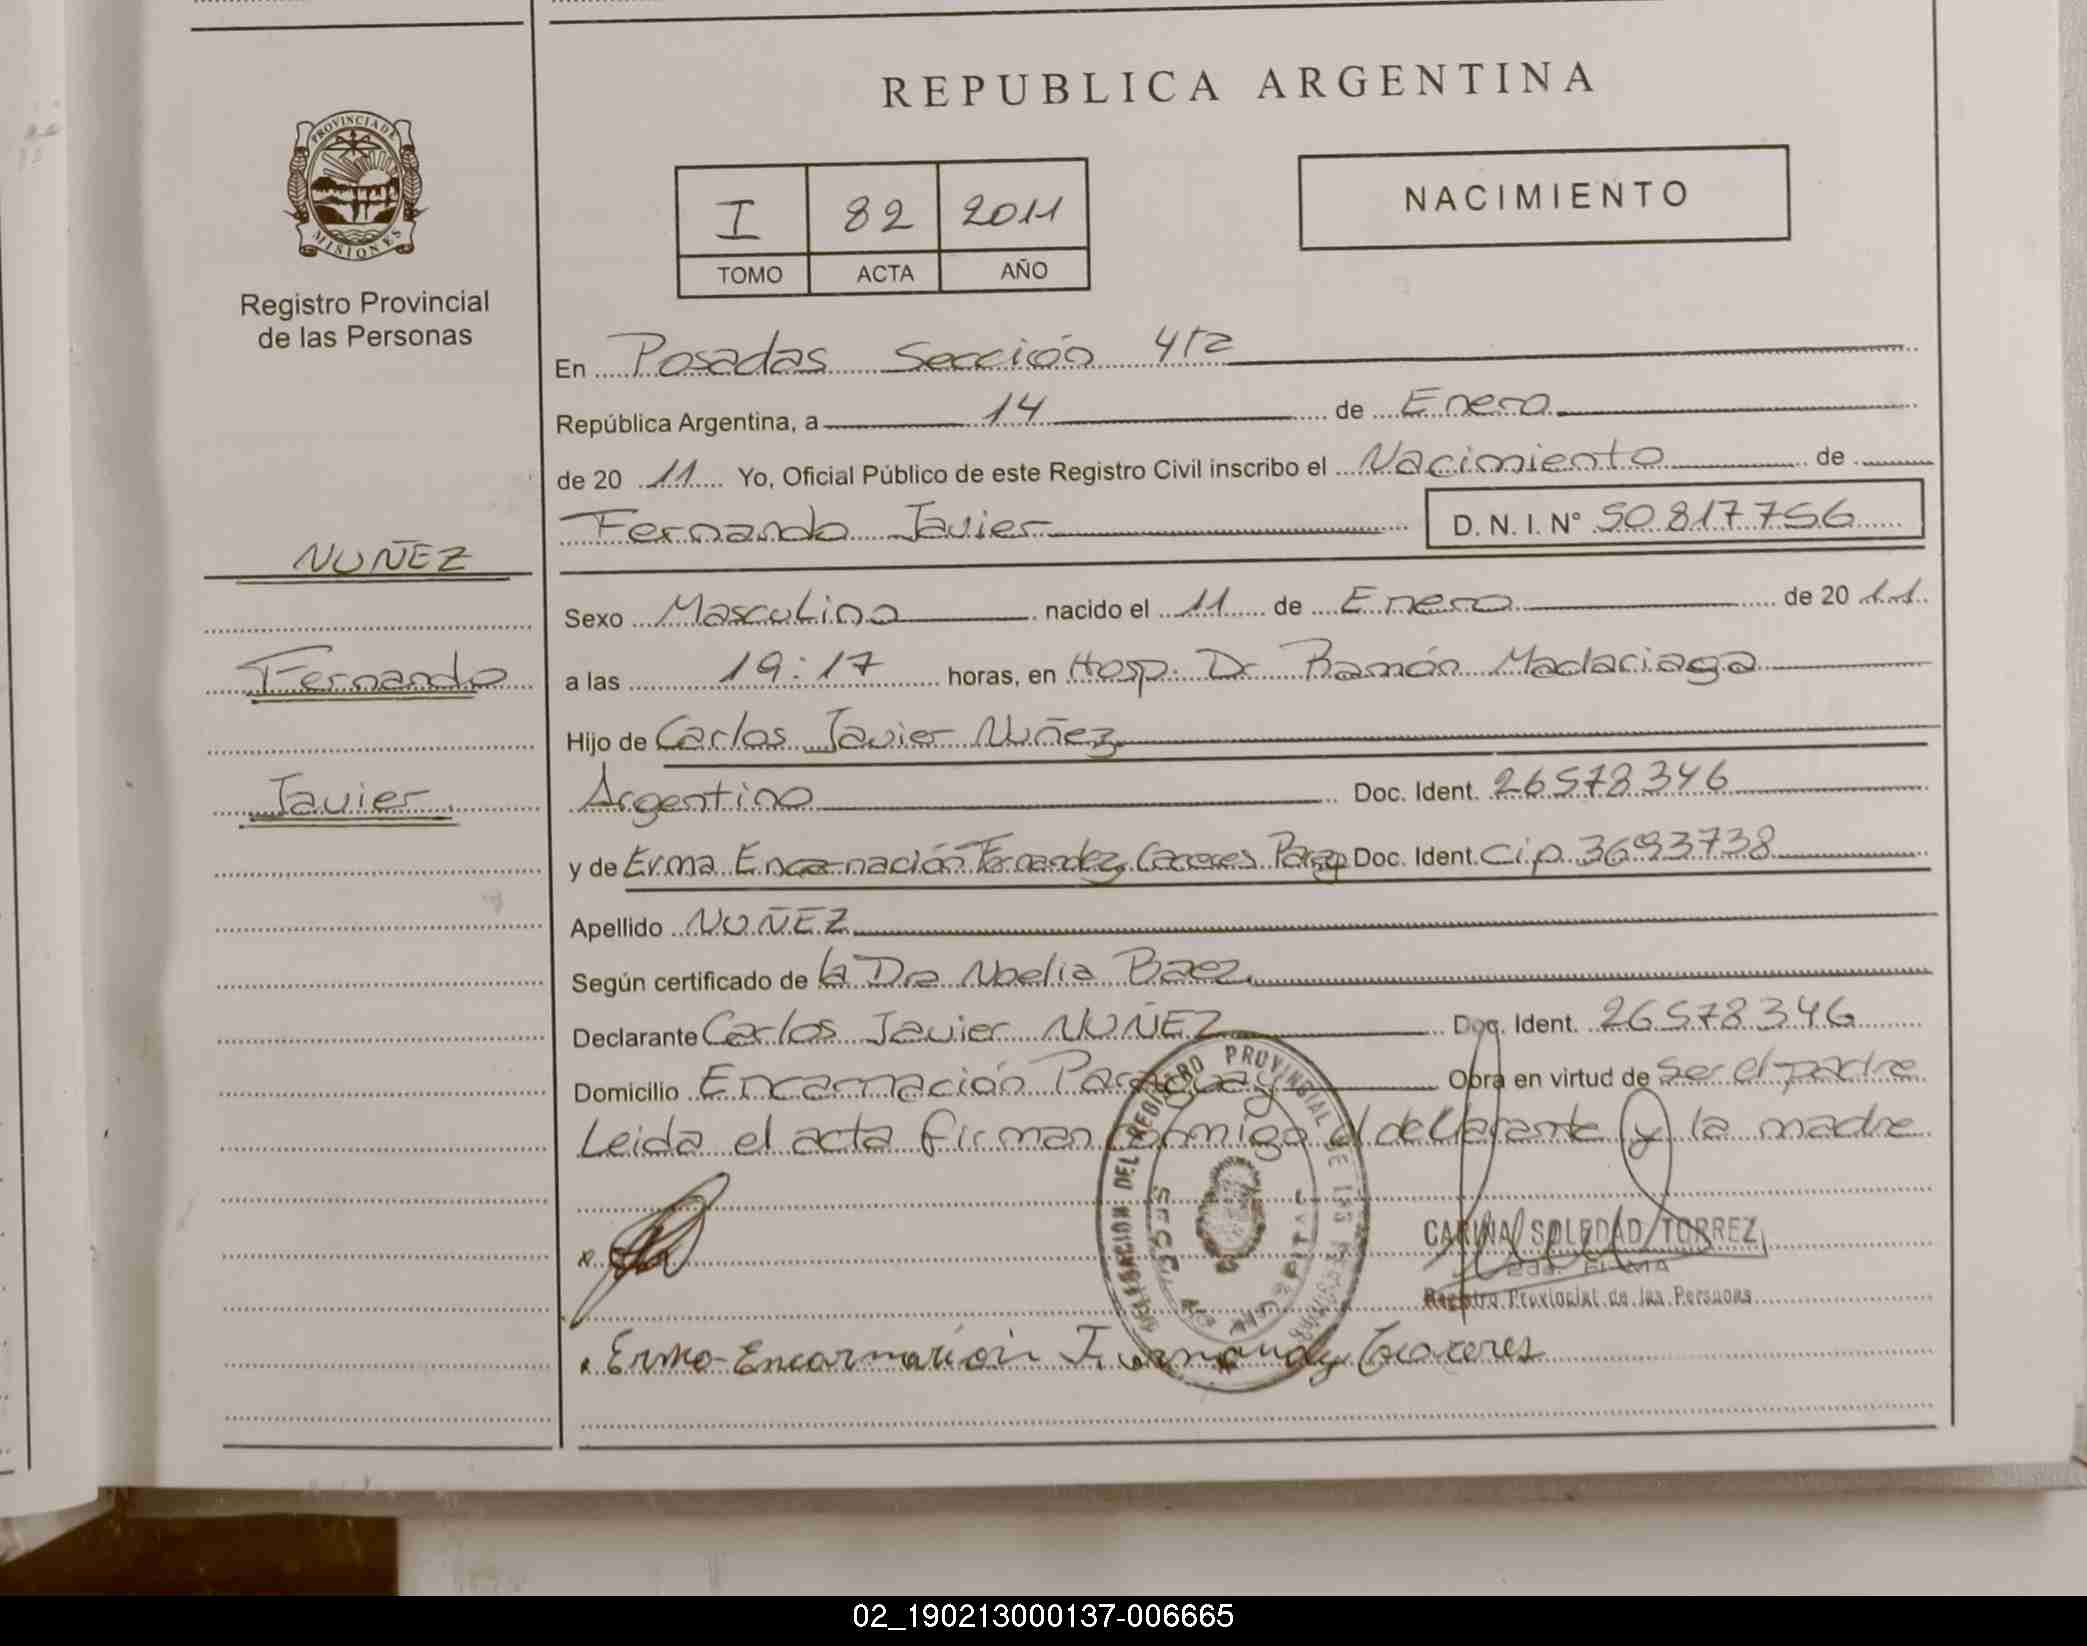 REPUBLICA ARGENTINA
PROVINCIA DE
MISIONES
Registro Provincial
de las Personas
I 82 2011
TOMO ACTA AÑO
NACIMIENTO
En Posadas Sección 4ta
República Argentina, a 14 de Enero
de 20 11 Yo, Oficial Público de este Registro Civil inscribo el Nacimiento de
Fernando Javier D. N. I. N° 50817756
NUÑEZ
Fernando
Javier
Sexo Masculino nacido el 11 de Enero de 20 11
a las 19:17 horas, en Hosp. Dr Ramón Madariaga
Hijo de Carlos Javier Nuñez
Argentino Doc. Ident. 26578346
y de Erma Encarnación Fernandez Caceres Parag Doc. Ident. Cip 3693738
Apellido NUÑEZ
Según certificado de la Dra Noelia Baez
Declarante Carlos Javier NUÑEZ Doc. Ident. 26578346
Domicilio Encarnación Paraguay Obra en virtud de ser el padre
Leida el acta firman conmigo el declarante y la madre
DELEGACION DEL REGISTRO PROVINCIAL DE LAS PERSONAS
CARINA SOLEDAD TORREZ
2da. FIRMA
Registro Provincial de las Personas
Erma Encarnación Fernandez Caceres
02_190213000137-006665